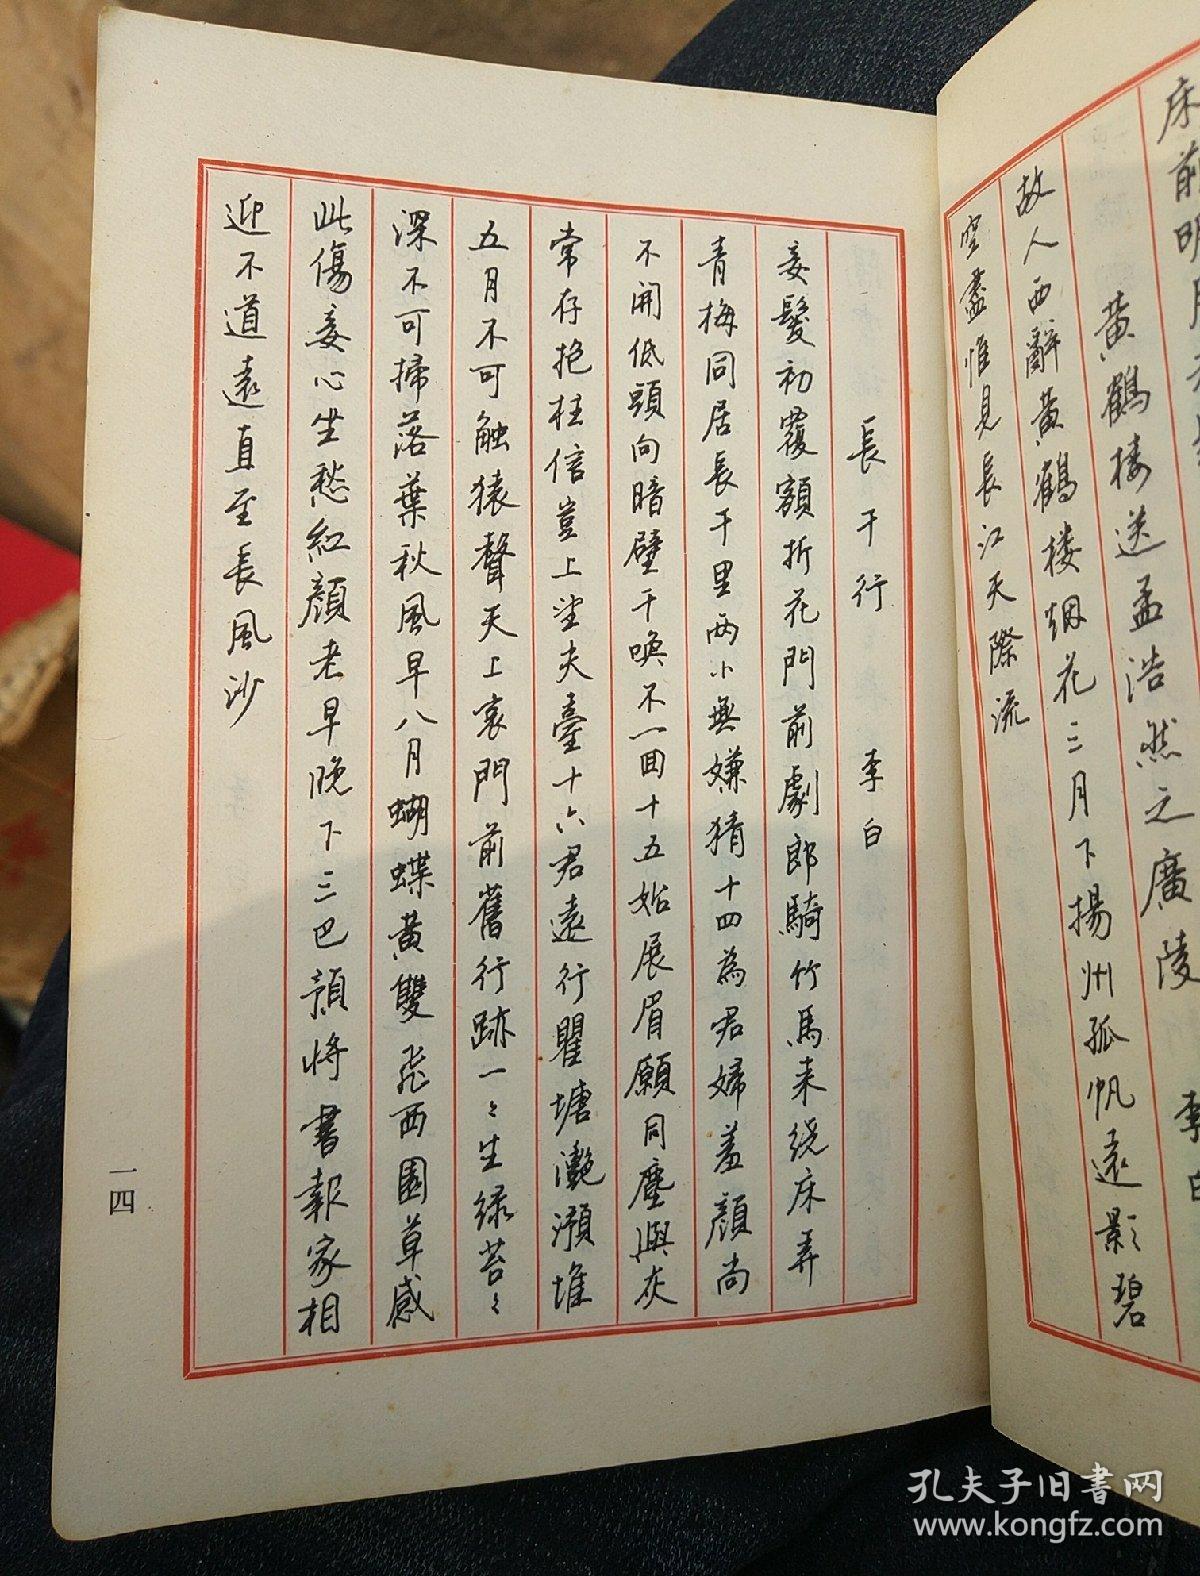 床前明月
黄鶴楼送孟浩然之廣陵 李白
故人西辭黄鶴楼烟花三月下揚州孤帆遠影碧
空盡惟見長江天際流
長干行 李白
妾髮初覆額折花門前劇郎騎竹馬来绕床弄
青梅同居長干里两小無嫌猜十四為君婦羞顔尚
不開低頭向暗壁千唤不一回十五始展眉願同塵與灰
常存抱柱信豈上望夫臺十六君遠行瞿塘灧澦堆
五月不可触猿聲天上哀門前舊行跡一〻生绿苔〻
深不可掃落葉秋風早八月蝴蝶黄雙飛西園草感
此傷妾心坐愁紅顔老早晚下三巴預将書報家相
迎不道遠直至長風沙
一四
孔夫子旧書网
www.kongfz.com